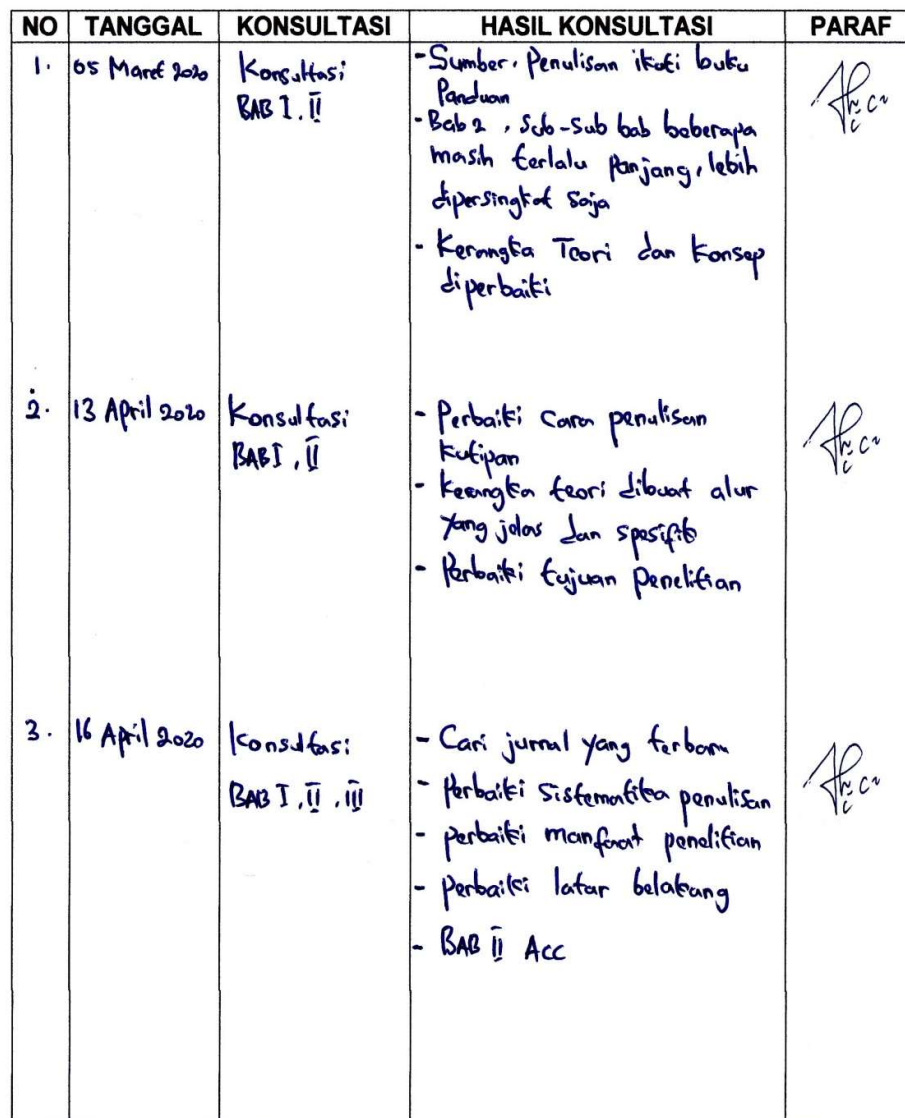 NO TANGGAL KONSULTASI HASIL KONSULTASI PARAF
1. 05 Maret 2020 Konsultasi - Sumber, Penulisan ikuti buku
BAB I, II Panduan
- Bab 2, Sub-Sub bab beberapa
masih terlalu Panjang, lebih
dipersingkat saja
- Kerangka Teori dan Konsep
diperbaiki
2. 13 April 2020 Konsultasi - Perbaiki Cara penulisan
BAB I, II Kutipan
- Kerangka teori dibuat alur
yang jelas dan spesifik
- Perbaiki tujuan Penelitian
3. 16 April 2020 Konsultasi - Cari jurnal yang terbaru
BAB I, II, III - Perbaiki Sistematika penulisan
- perbaiki manfaat penelitian
- Perbaiki latar belakang
- BAB II Acc